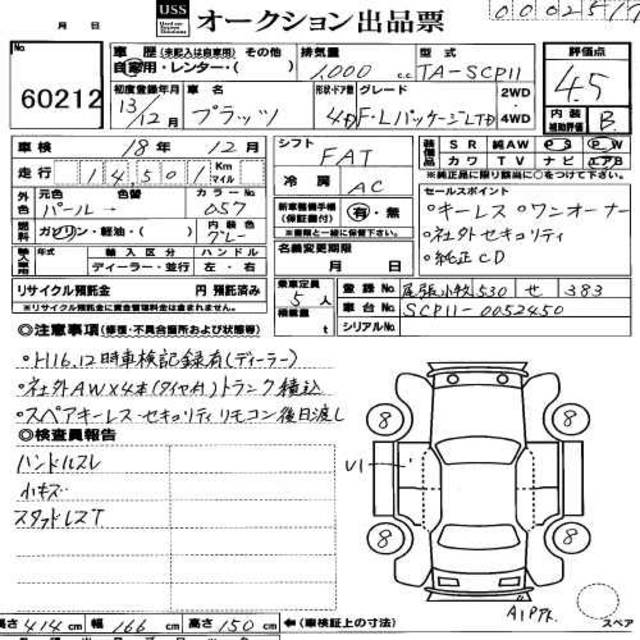 USS オークション出品票
月 日
No 60212
車歴(未記入は自家用) その他
自家用・レンター・( )
排気量 1,000 c.c.
型式 TA-SCP11
評価点 4.5
内装補助評価 B
初度登録年月 13/12月
車名 プラッツ
形状・ドア数 4D
グレード F・Lパッケージ LTD
2WD
4WD
車検 18年 12月
走行 14501 Km マイル
シフト FAT
冷房 AC
装備品 SR 純AW PS PW
カワ TV ナビ エアB
※純正品に限り該当に○をつけて下さい。
外色 元色 色替 カラーNo
パール → 057
燃料 ガソリン・軽油・( )
内装色 グレー
輸入車用 年式 輸入区分 ハンドル
ディーラー・並行 左・右
新車整備手帳(保証書付) 有・無
※書類と一緒に保管下さい。
名義変更期限
月 日
セールスポイント
○キーレス ○ワンオーナー
○社外セキュリティ
○純正CD
リサイクル預託金 円 預託済み
※リサイクル預託金に資金管理料金は含まれません。
乗車定員 5人
積載量 t
登録No 尾張小牧 530 せ 383
車台No SCP11-0052450
シリアルNo
◎注意事項(修復・不具合箇所および状態等)
○H16.12時車検記録有(ディーラー)
○社外AW×4本(タイヤ付)トランク積込
○スペアキーレス・セキュリティリモコン後日渡し
◎検査員報告
ハンドルスレ
小キズ
スタッドレスT
U1
8 8
8 8
A1Pテ.
スペア
長さ 414 cm 幅 166 cm 高さ 150 cm ←(車検証上の寸法)